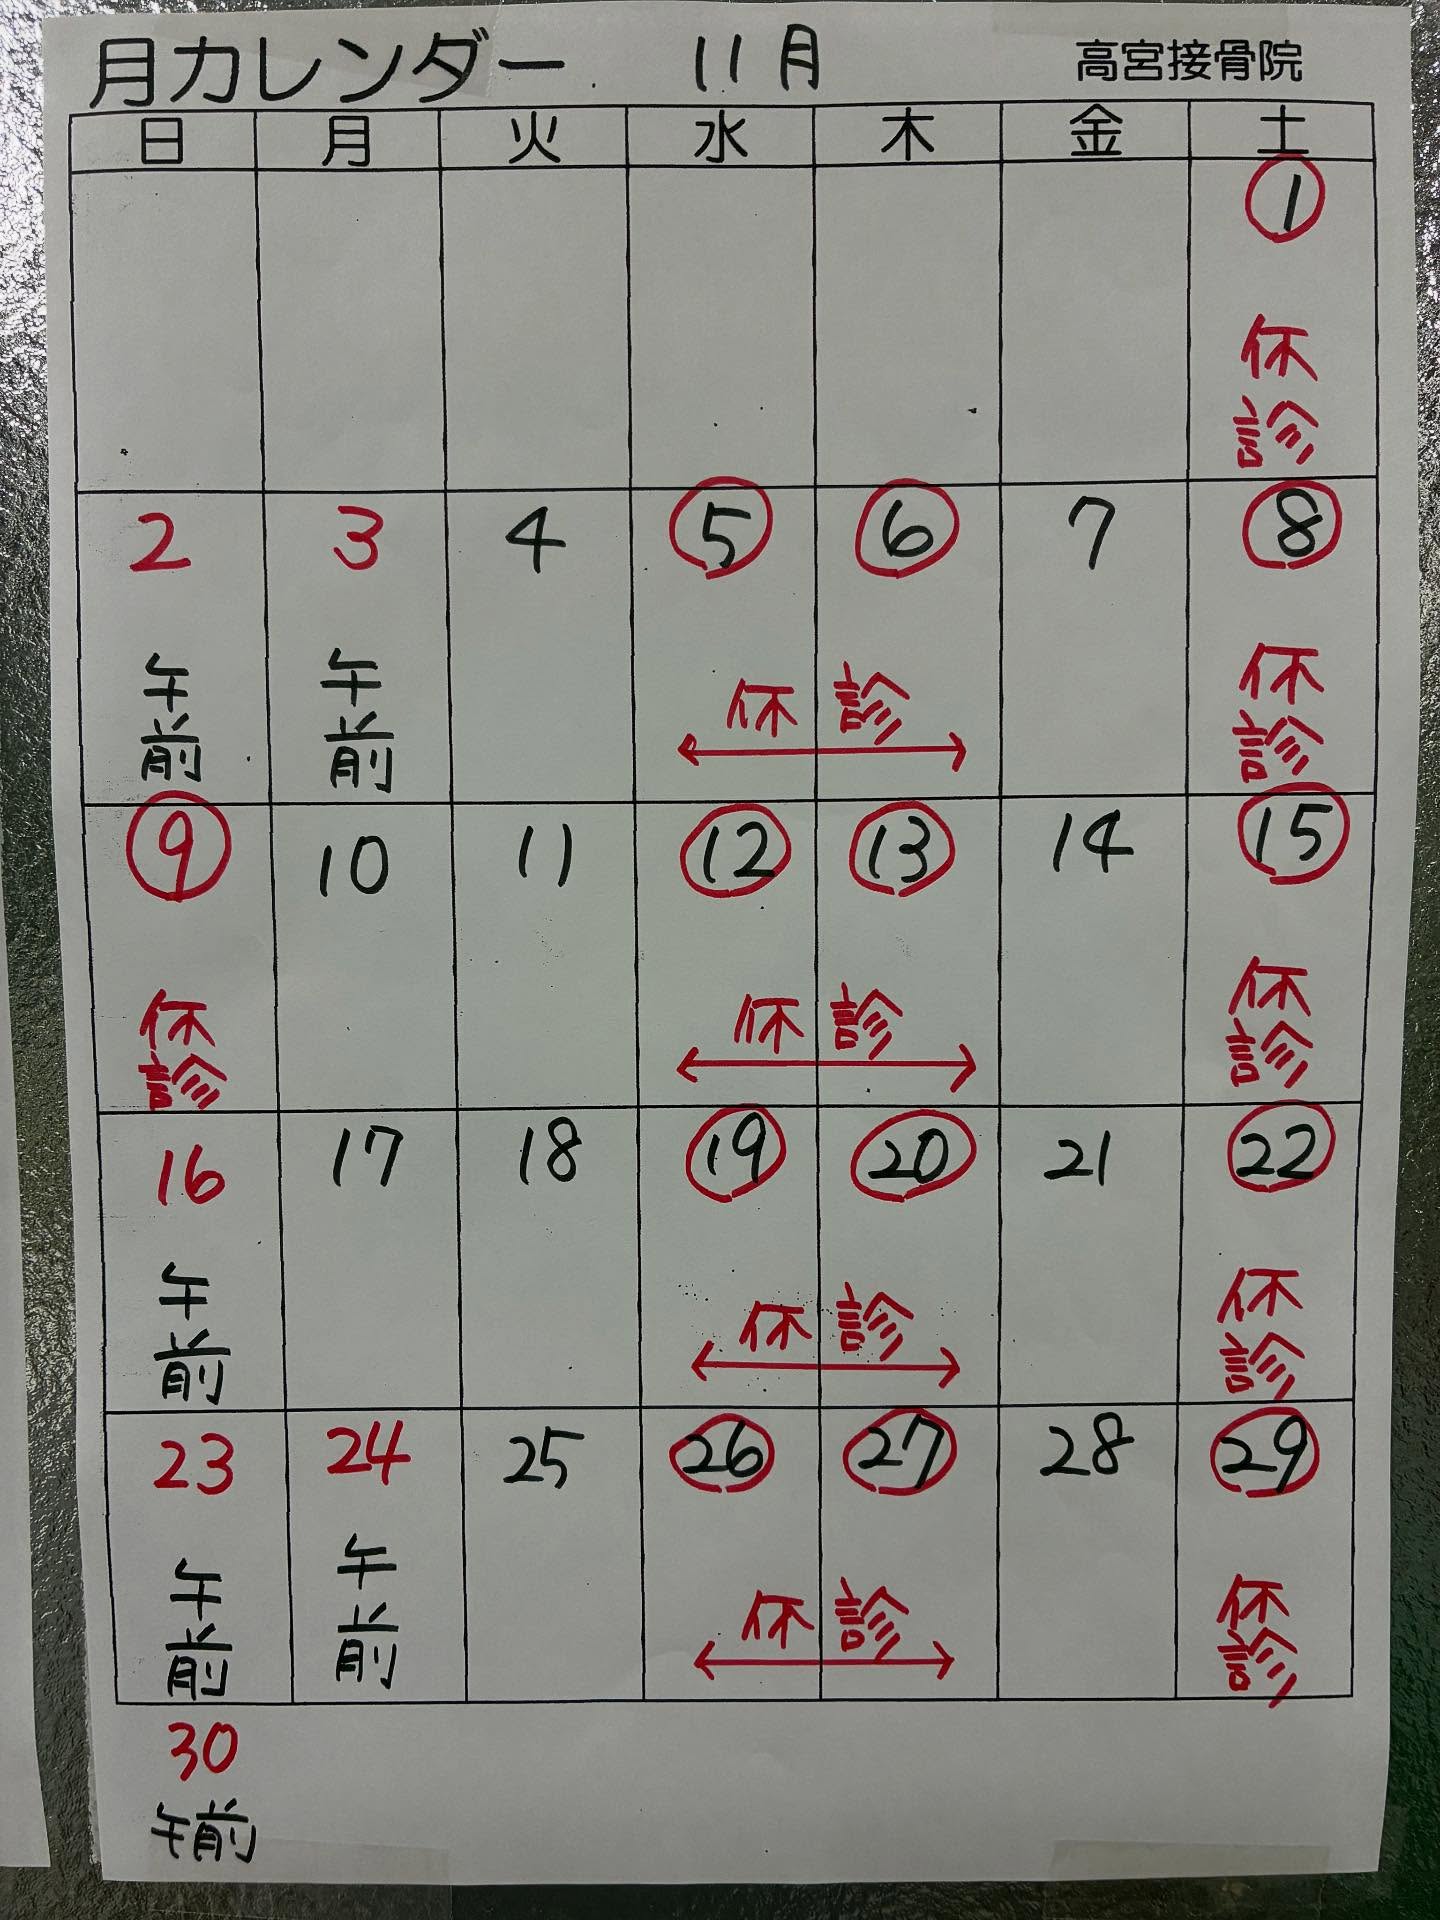 月カレンダー 11月 高宮接骨院
日 月 火 水 木 金 土
1
休診
2 3 4 5 6 7 8
午前 午前 休診 休診
9 10 11 12 13 14 15
休診 休診 休診
16 17 18 19 20 21 22
午前 休診 休診
23 24 25 26 27 28 29
午前 午前 休診 休診
30
午前